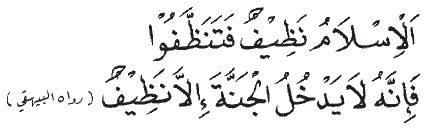 اَلْاِسْلَامُ نَظِيْفٌ فَتَنَظَّفُوْا
فَاِنَّهُ لَا يَدْخُلُ الْجَنَّةَ اِلَّا نَظِيْفٌ (رواه البيهقي)